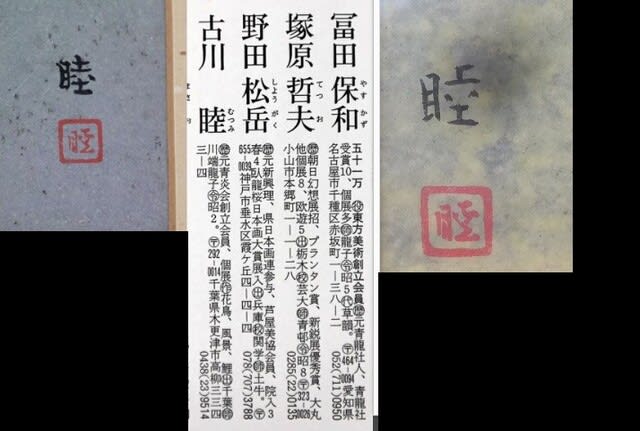 睦
睦
冨田 保和
やす かず
五十一万 役東方美術創立会員歴元青龍社人、青龍社
受賞10、個展多師龍子令昭5代草韻。〒464-0094愛知県
名古屋市千種区赤坂町一ー三八ー二
052(711)0950
塚原 哲夫
てつ お
歴朝日幻想展招、プランタン賞、新鋭展優秀賞、大丸
他個展8、欧遊5出栃木校芸大師青邨令昭8〒323-0026
小山市本郷町一ー一ー二八
0285(22)0135
野田 松岳
しょう がく
歴元新興理、県日本画連参与、芦屋美協会員、院入3
春4臥龍桜日本画大賞展入出兵庫校関学師土牛。〒
655-0039神戸市垂水区霞ケ丘四ー四ー四
078(707)3788
古川 睦
むつみ
歴元青炎会創立会員、個展作花鳥、風景、鯉出千葉師
川端龍子令昭2。〒292-0014千葉県木更津市高柳三三四
三ー四
0438(23)9514
睦
睦